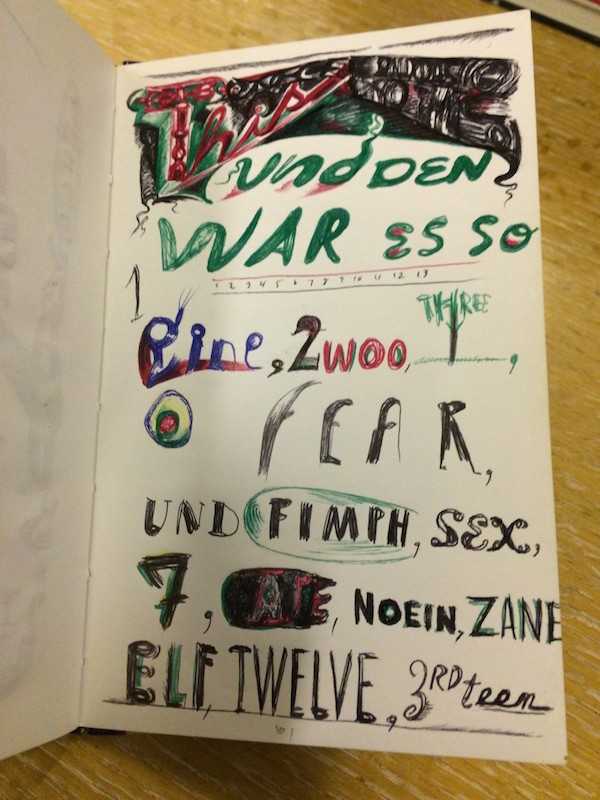 This
und DEN
WAR ES SO
1 2 3 4 5 6 7 8 9 10 11 12 13
1
THREE
Eine, 2WOO, T,
FEAR,
UND FIMPH, SEX,
7, ATE, NOEIN, ZANE
ELF, TWELVE, 3RDteen